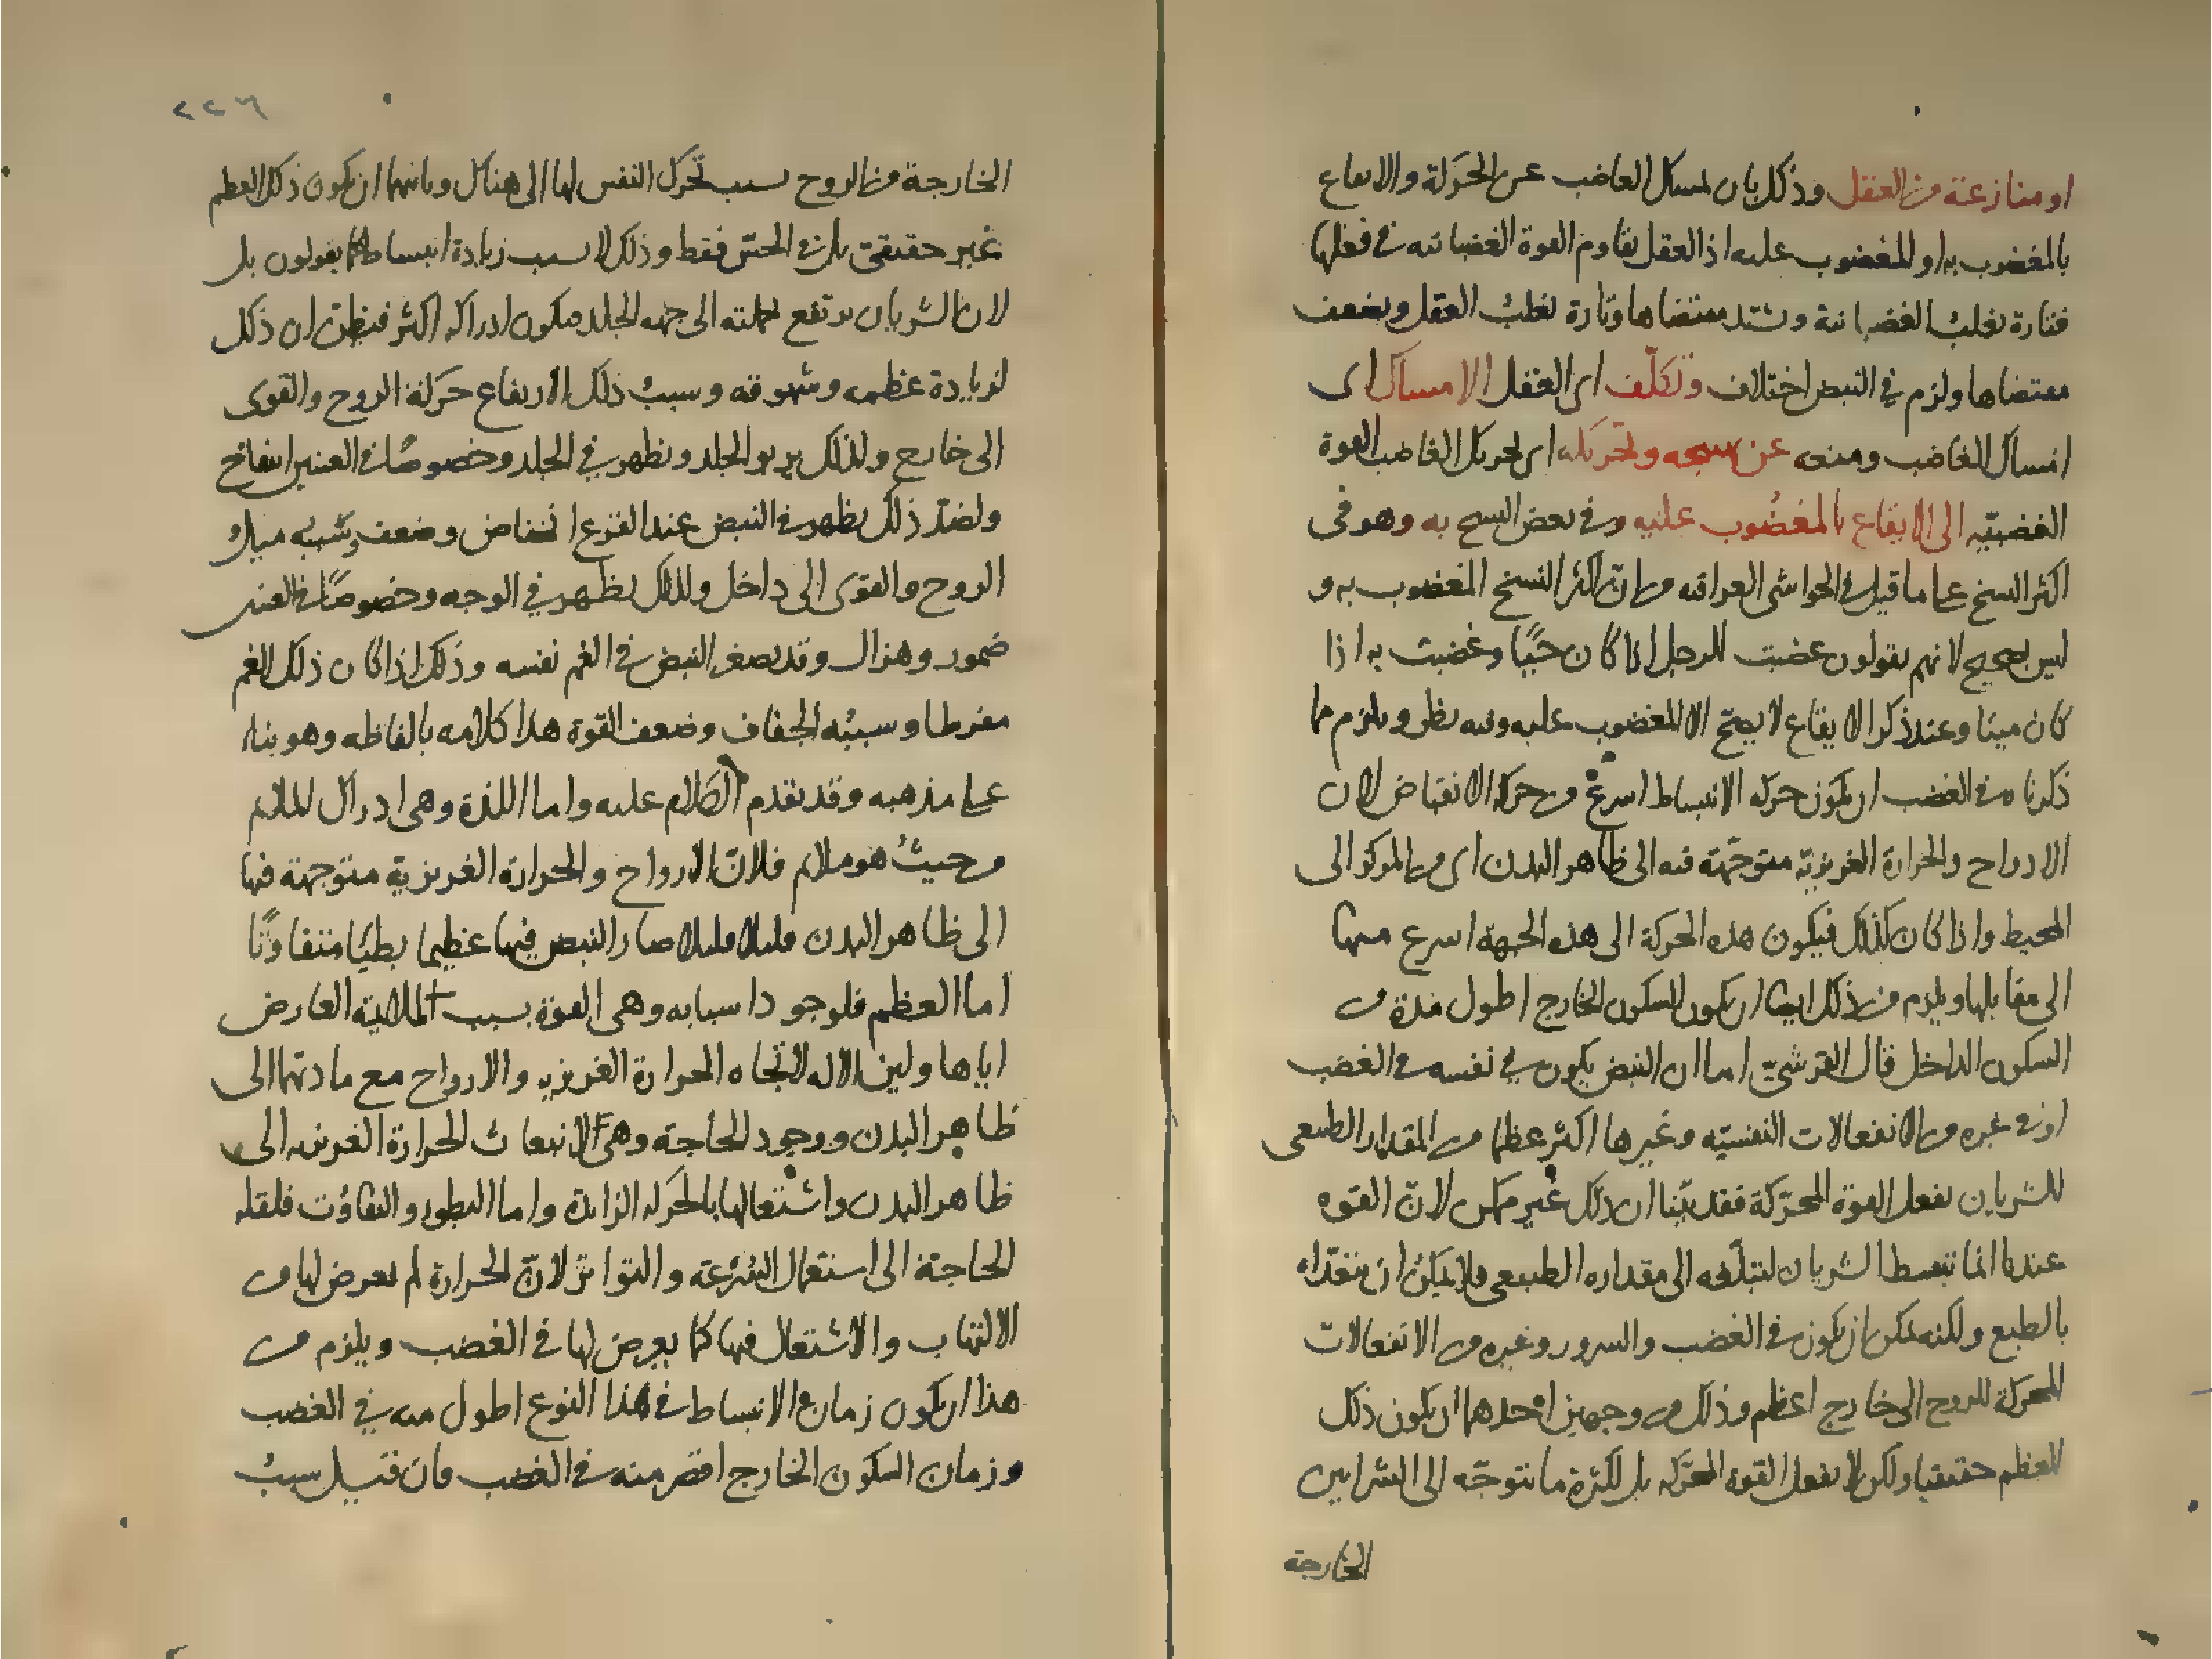 او منازعة من العقل وذلك بان لمسك الغاضب عن الحركة والايقاع
بالمغضوب به او المغضوب عليه اذ العقل يقاوم القوة الغضبانية في فعلها
فتارة تغلب الغضبانية وتشتد مقتضاها وتارة يغلب العقل ويضعف
مقتضاها ولزم في النبض اختلاف وتكلف اى العقل الامساك اى
امساك الغاضب ومنعه عن وتحريكه اى تحريك الغاضب القوة
الغضبية الى الايقاع بالمغضوب عليه وفي بعض النسخ به وهو فى
اكثر النسخ على ما قيل في الحواشى العراقيه من ان اكثر النسخ المغضوب به و
ليس بصحيح لانهم يقولون غضبت للرجل اذا كان حيًا وغضبت به اذا
كان ميتا وعند ذكر الايقاع لا يصح الا المغضوب عليه وفيه نظر ويلزم مما
ذكرنا في الغضب ان يكون حركة الانبساط اسرع من حركة الانقباض لان
الارواح والحرارة الغريزية متوجهة فيه الى ظاهر البدن اى من المركز الى
المحيط واذا كان كذلك فيكون هذه الحركة الى هذه الجهة اسرع منها
الى مقابلها ويلزم من ذلك ايضا ان يكون السكون الخارج اطول مدة من
السكون الداخل قال القرشى اما ان النبض يكون في نفسه في الغضب
او في غيره من الانفعالات النفسيه وغيرها اكثر عظما من المقدار الطبيعى
للشريان بفعل القوة المحركة فقد بينا ان ذلك غير ممكن لان القوه
عندنا انما تبسط الشريان لتبلغه الى مقداره الطبيعى فلا يمكن ان يتعداه
بالطبع ولكنه يمكن ان يكون في الغضب والسرور وغيره من الانفعالات
المحركة للروح الى خارج اعظم وذلك من وجهين احدهما ان يكون ذلك
العظم حقيقيا ولكن لا بفعل القوة المحركه بل لكثرة ما يتوجه الى الشرايين
الخارجة
٢٢٦
الخارجة من الروح بسبب تحرك النفس لها الى هناك وثانيهما ان يكون ذلك العظم
غير حقيقى بل في الحس فقط وذلك لا بسبب زيادة انبساط كما يقولون بل
لان الشريان يرتفع بجملته الى جهه الجلد فيكون ادراكه اكثر فيظن ان ذلك
لزيادة عظمه وشهوقه وسبب ذلك الارتفاع حركة الروح والقوى
الى خارج ولذلك يربو الجلد ويظهر في الجلد وخصوصًا في العينين انتفاخ
ولضد ذلك يظهر في النبض عند الفزع انخفاض وضعف وسببه ميل
الروح والقوى الى داخل ولذلك يظهر في الوجه وخصوصًا في العينين
ضمور وهزال وقد يصغر النبض في الغم نفسه وذلك اذا كان ذلك الغم
مفرطا وسببه الجفاف وضعف القوة هذا كلامه بالفاظه وهو بناء
على مذهبه وقد تقدم الكلام عليه واما اللذة وهى ادراك الملائم
من حيث هو ملائم فلان الارواح والحرارة الغريزية متوجهة فيها
الى ظاهر البدن قليلا قليلا صار النبض فيها عظيما بطيئا متفاوتًا
اما العظم فلوجود اسبابه وهى القوة بسبب الملائمة العارض
اياها ولين الاله لاتجاه الحرارة الغريزيه والارواح مع مادتها الى
ظاهر البدن ووجود الحاجة وهى الانبعاث الحرارة الغريزيه الى
ظاهر البدن واشتعالها بالحركه الزائدة واما البطوء والتفاوت فلقله
الحاجة الى استعمال السرعة والتواتر لان الحرارة لم تعرض لها من
الالتهاب والاشتعال فيها كما يعرض لها في الغضب ويلزم من
هذا ان يكون زمان الانبساط في هذا النوع اطول منه في الغضب
وزمان السكون الخارج اقصر منه في الغضب فان قيل سبب